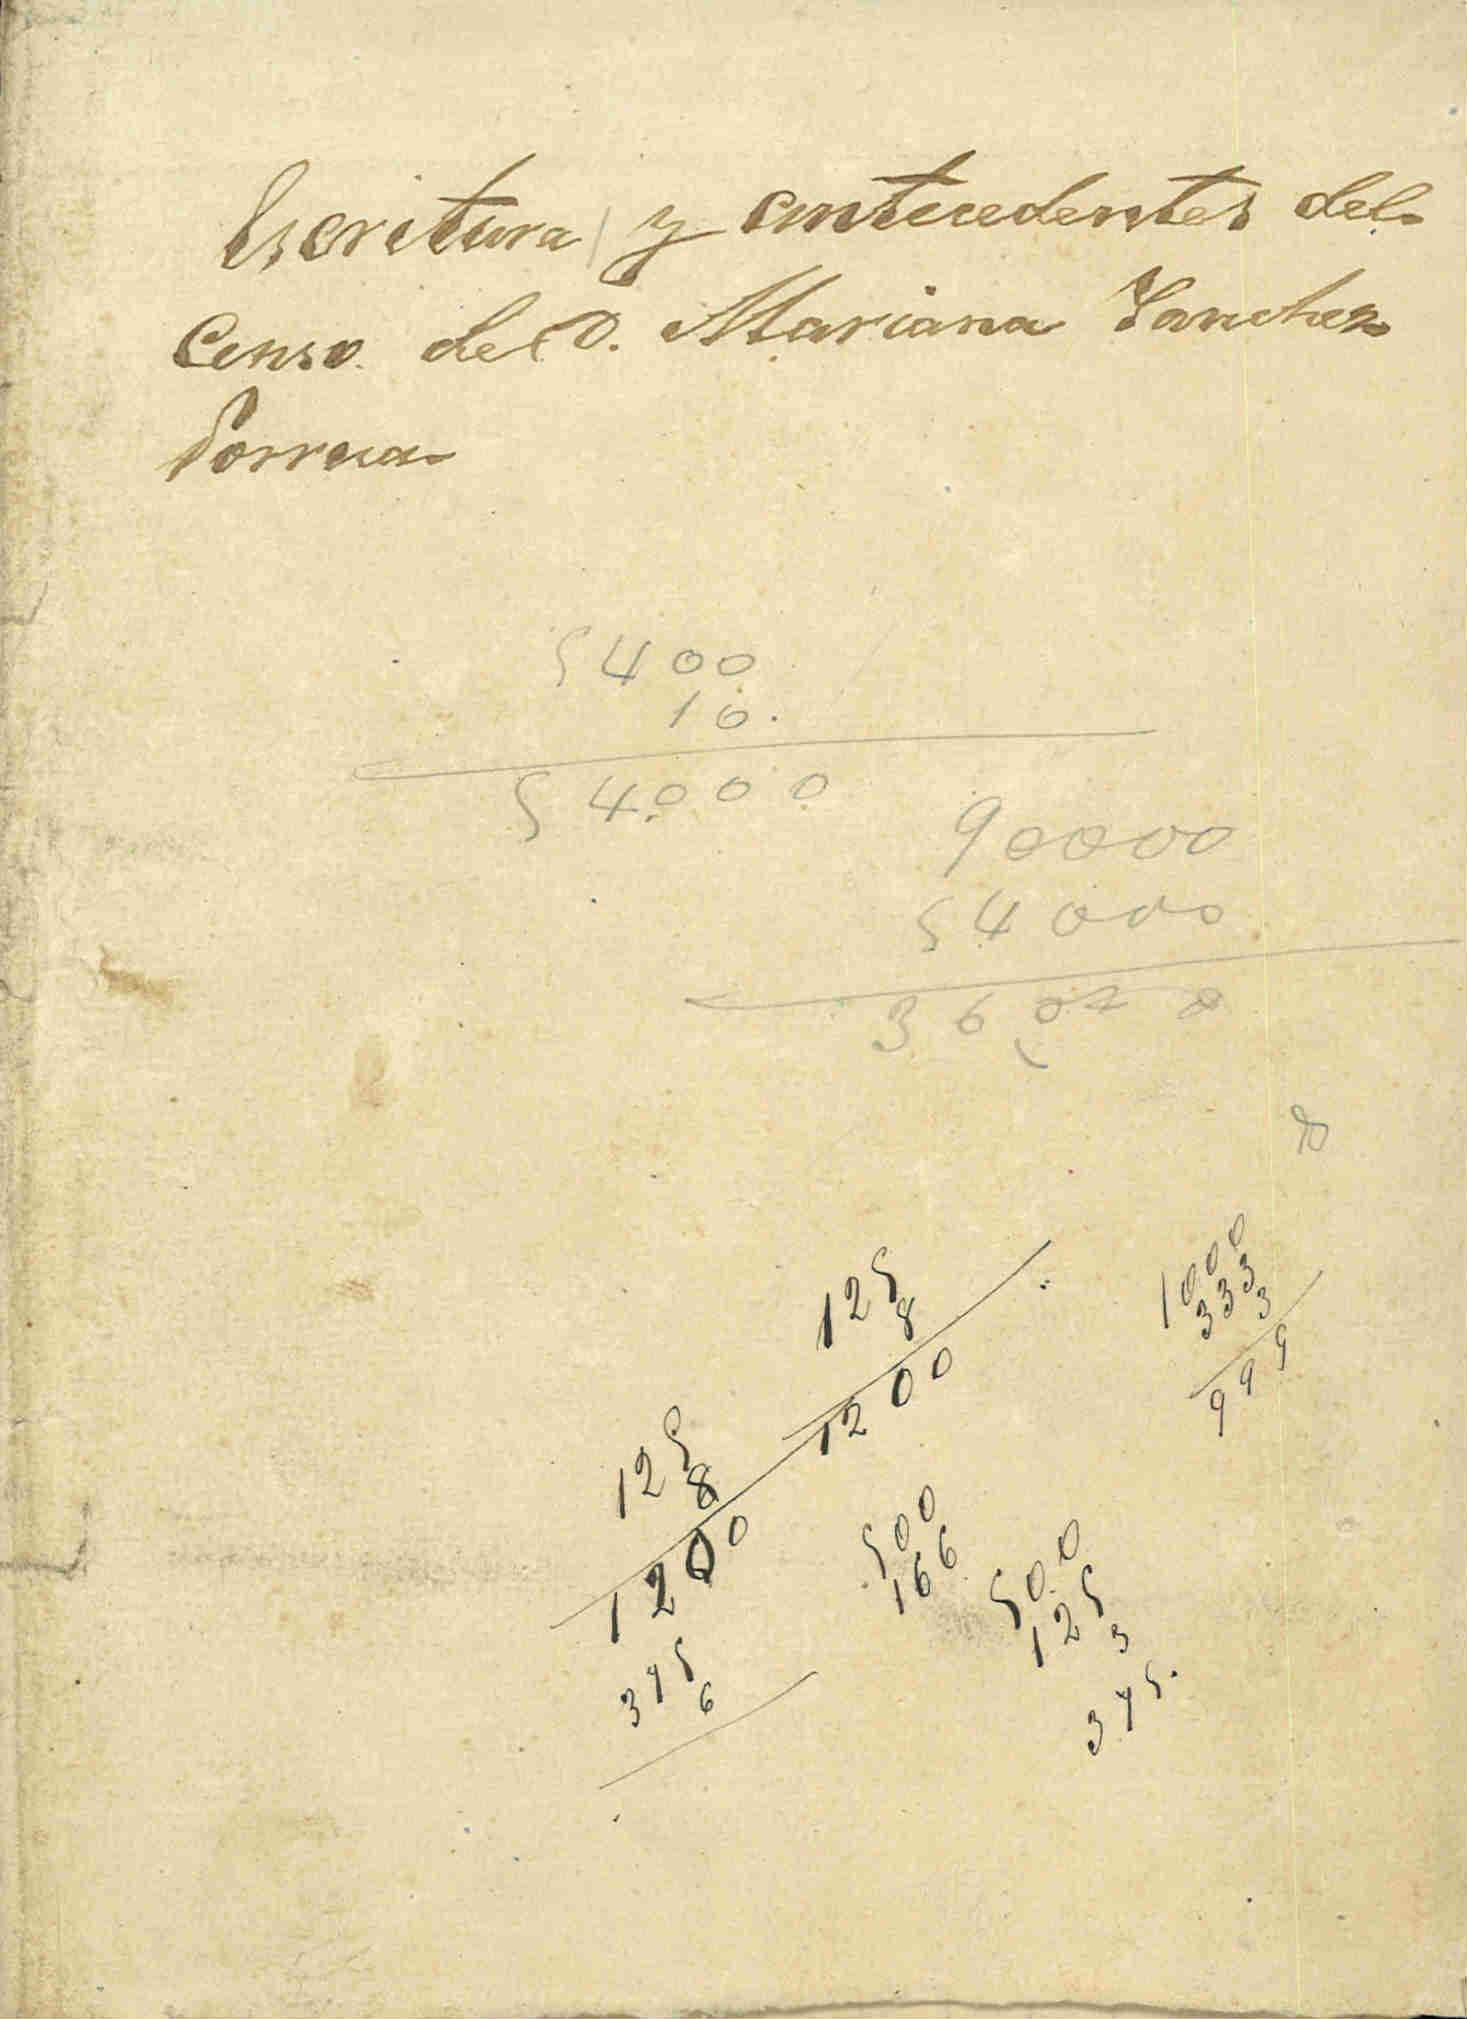 Escritura y antecedentes del
Censo de D. Mariana Sanchez
5400
10.
54000
90000
54000
36000
125
8
1200
1000
333
3
999
125
8
1200
375
6
500
166
500
125
3
375.